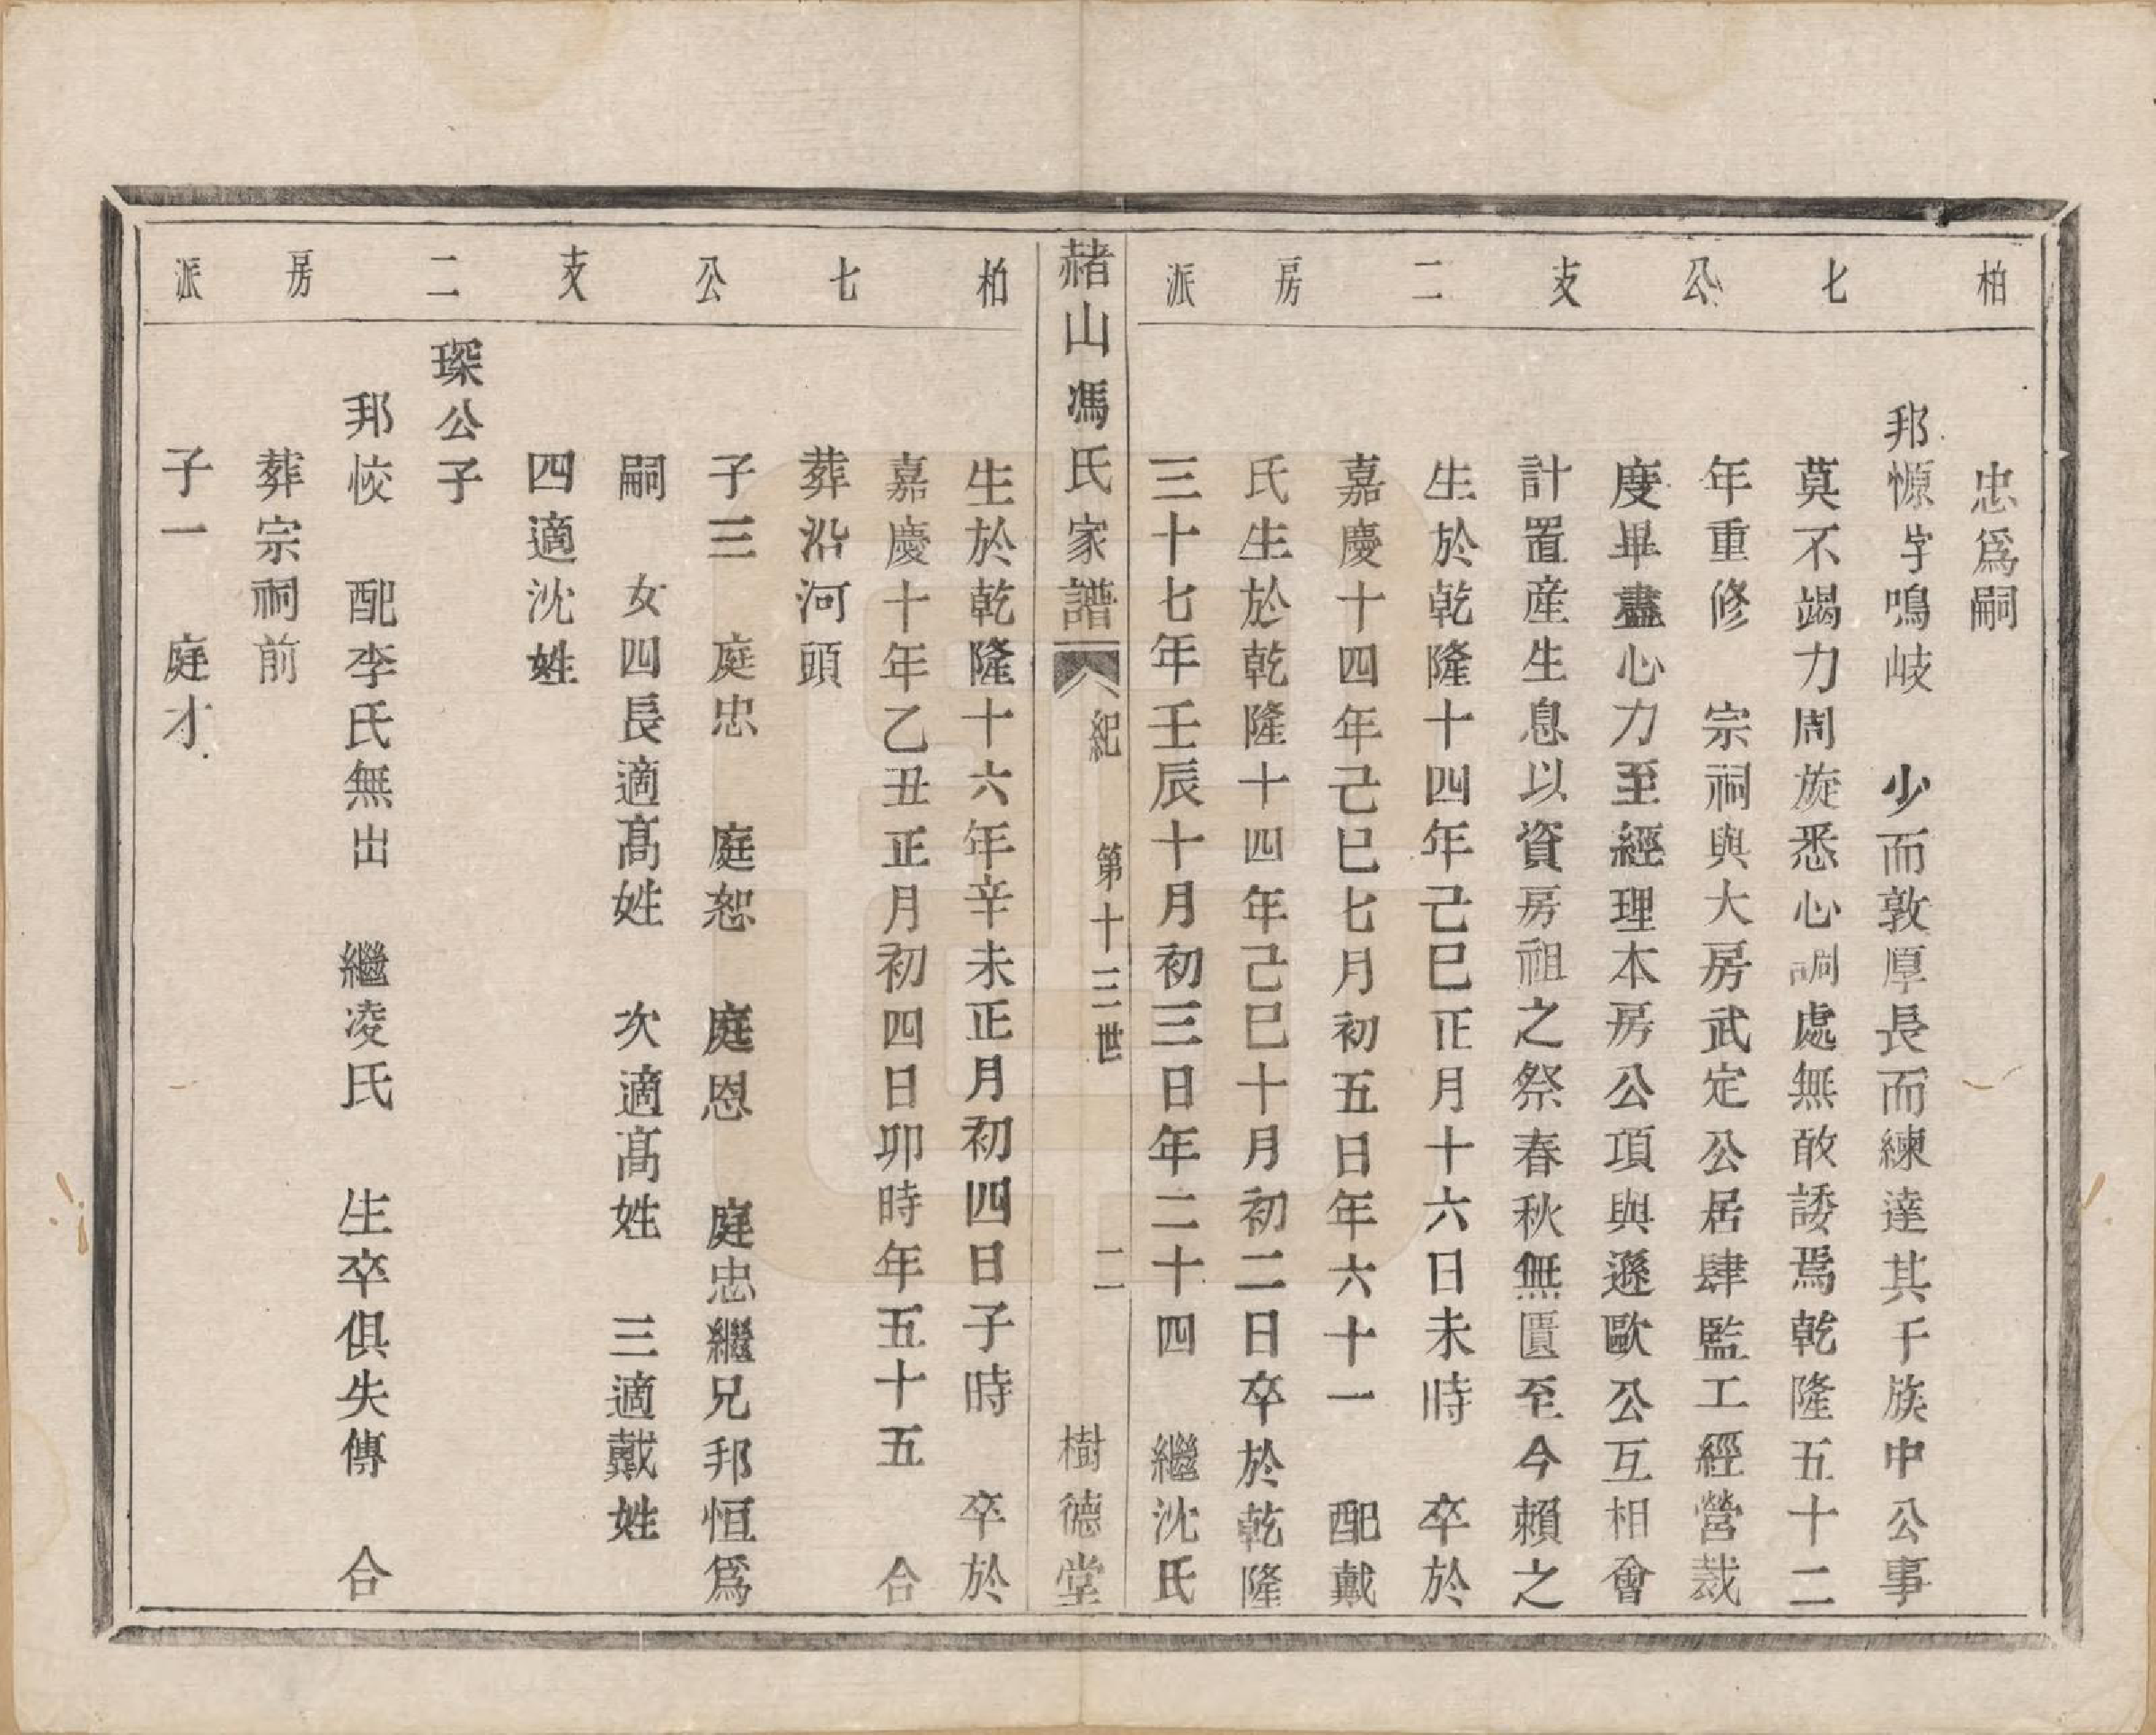 柏七公支二房派
忠爲嗣
邦愫字鳴岐　少而敦厚長而練達其于族中公事
莫不竭力周旋悉心調處無敢諉焉乾隆五十二
年重修　宗祠與大房武定公居肆監工經營裁
度畢盡心力至經理本房公項與遜歐公互相會
計置産生息以資房祖之祭春秋無匱至今賴之
生於乾隆十四年己巳正月十六日未時　卒於
嘉慶十四年己巳七月初五日年六十一　配戴
氏生於乾隆十四年己巳十月初二日卒於乾隆
三十七年壬辰十月初三日年二十四　繼沈氏
赭山馮氏家譜　紀　第十三世　二　樹德堂
柏七公支二房派
生於乾隆十六年辛未正月初四日子時　卒於
嘉慶十年乙丑正月初四日卯時年五十五　合
葬沿河頭
子三　庭忠　庭恕　庭恩　庭忠繼兄邦恒爲
嗣　女四長適高姓　次適高姓　三適戴姓
四適沈姓
琛公子
邦恔　配李氏無出　繼凌氏　生卒俱失傳　合
葬宗祠前
子一　庭才